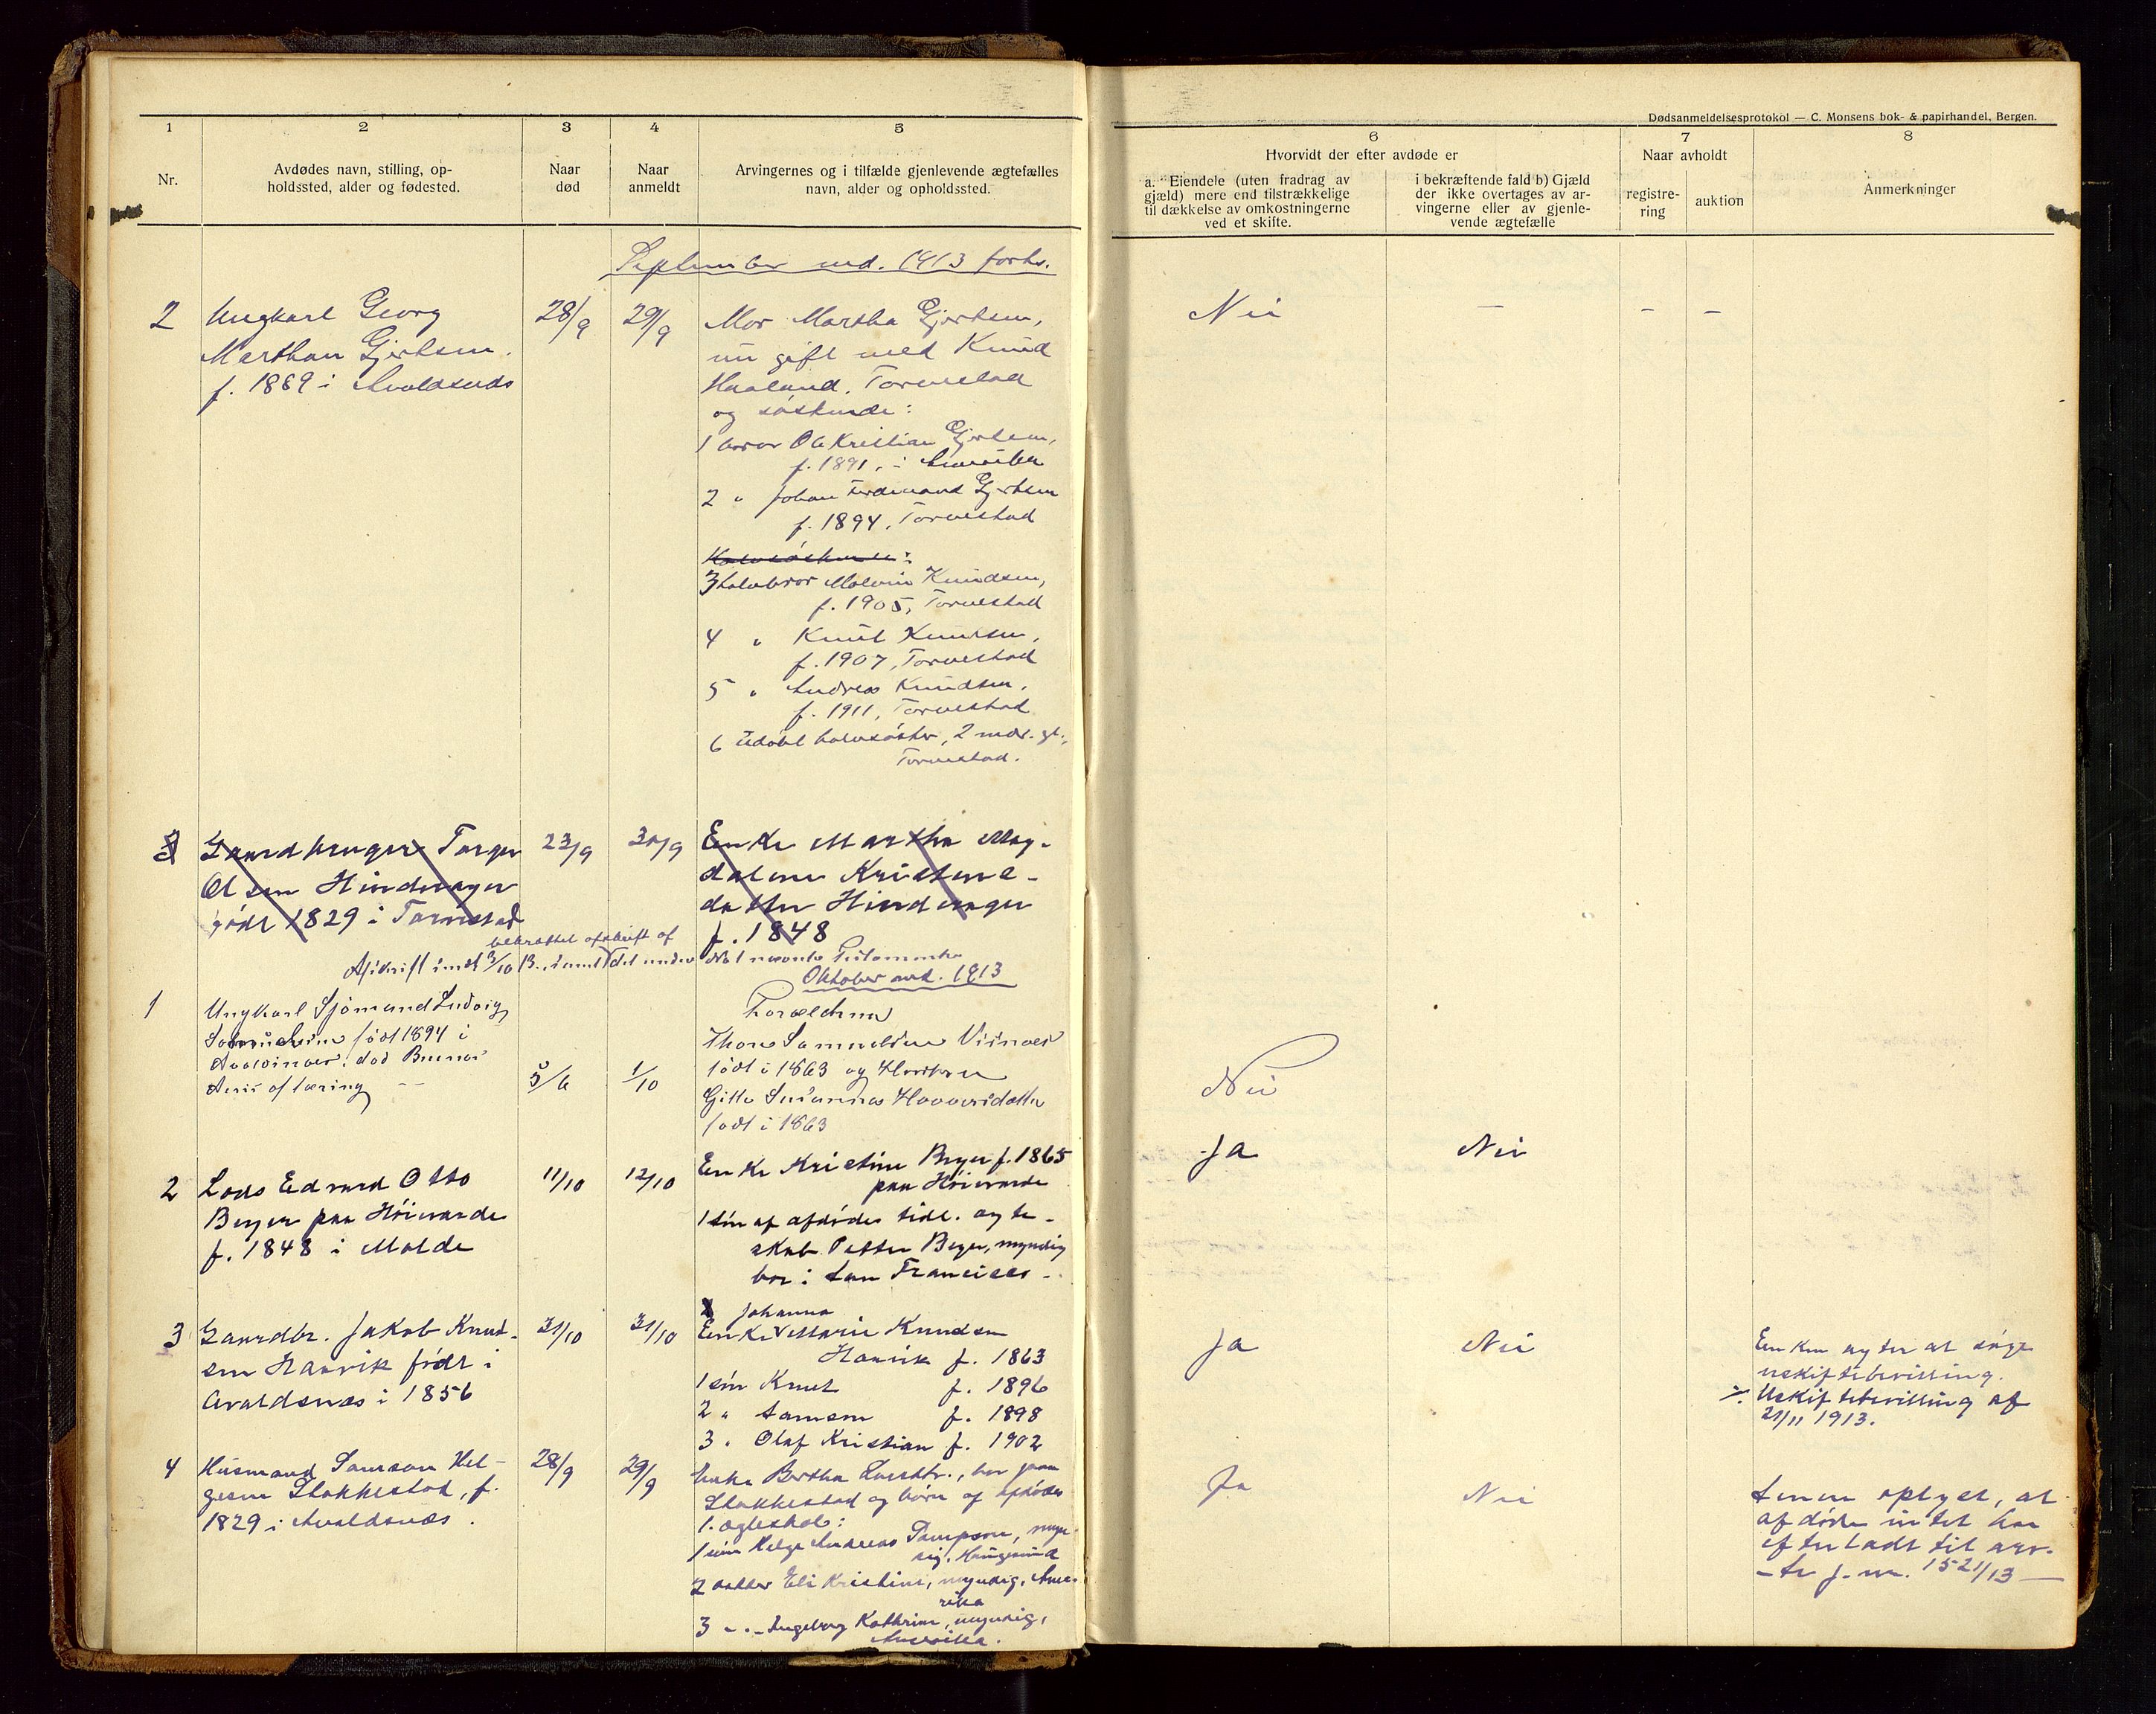 Dødsanmeldelsesprotokol — C. Monsens bok- & papirhandel, Bergen.
1 2 3 4 5 6 7 8
Nr.
Avdødes navn, stilling, op-
holdssted, alder og fødested.
Naar
død
Naar
anmeldt
Arvingernes og i tilfælde gjenlevende ægtefælles
navn, alder og opholdssted.
Hvorvidt der efter avdøde er
a. Eiendele (uten fradrag av
gjæld) mere end tilstrækkelige
til dækkelse av omkostningerne
ved et skifte.
i bekræftende fald b) Gjæld
der ikke overtages av ar-
vingerne eller av gjenle-
vende ægtefælle
Naar avholdt
registre-
ring
auktion
Anmerkninger
September md. 1913 forts.
2 Ungkarl Georg
Marthon Gjertsen.
f. 1889 i Avaldsnæs
28/9 29/9
Mor Martha Gjertsen,
nu gift med Knud
Haaland, Torvestad
og søskende:
1 bror Ole Kristian Gjertsen,
f. 1891, i Amerika
2 " Johan Ferdinand Gjertsen
f. 1894, Torvestad
Halvsøskende:
3 halvbror Malvin Knudsen,
f. 1905, Torvestad
4 " Knut Knudsen,
f. 1907, Torvestad
5 " Andreas Knudsen,
f. 1911, Torvestad
6 Udøbt halvsøster, 2 mdr. gl.,
Torvestad.
Nei — - -
3 Gaardbruger Torger
Olsen Hinderager
født 1829 i Torvestad
23/9 30/9
Enke Martha Mag-
dalene Kristens-
datter Hinderager
f. 1848
bekræftet afskrift af
Afskrift inds. 3/10 13. samt det under No 1 nævnte Testamente
Oktober md. 1913
1 Ungkarl Sjømand Ludvig
født 1894 i
død Buenos
Aeris af tæring
5/6 1/10
Forældrene
Thore Samuelsen Visnæs
født i 1863 og Hustru
Gitte Susanna
født i 1863
Nei
2 Lods Edvard Otto
Beyer paa Høievarde
f. 1848 i Molde
11/10 12/10
Enke Kristine Beyer f. 1865
paa Høievarde
1 søn af afdødes tidl. ægte-
skab Petter Beyer, myndig
bor i San Francisco -
Ja Nei
3 Gaardbr. Jakob Knud-
sen Haavik født i
Avaldsnæs i 1856
31/10 31/10
Johanna
Enke Marie Knudsen
Haavik f. 1863
1 søn Knut f. 1896
2 " Samson f. 1898
3 " Olaf Kristian f. 1902
Ja Nei
Enken agter at søge
uskiftebevilling.
Uskiftebevilling af
21/11 1913.
4 Husmand Samson Hel-
gesen Stakkestad, f.
1829 i Avaldsnæs.
28/9 29/9
Enke Bertha Larsdtr., bor paa
Stakkestad og børn af afdødes
1. ægteskab:
1 søn Helge Andreas Sampson, myn-
dig, Haugesund
2 datter Eli Kristine, myndig, Ame-
rika
3 -"- Ingeborg Kathrine, myndig,
Amerika.
Ja Nei
oplyst, at
afdøde intet har
efterladt til arv-
j.nr. 1521/13 —